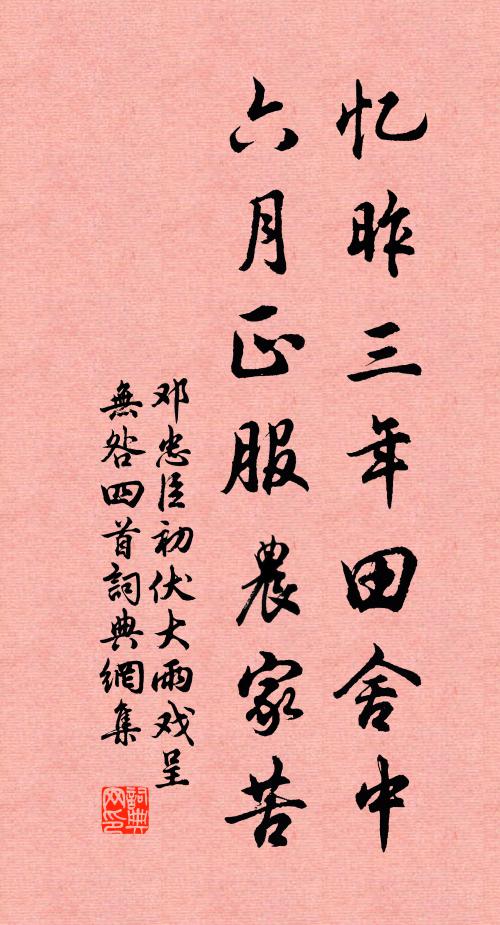 忆昨三年田舍中
六月正服農家苦
邓忠臣初伏大雨戏呈
無咎四首詞典網集
詞典
网印